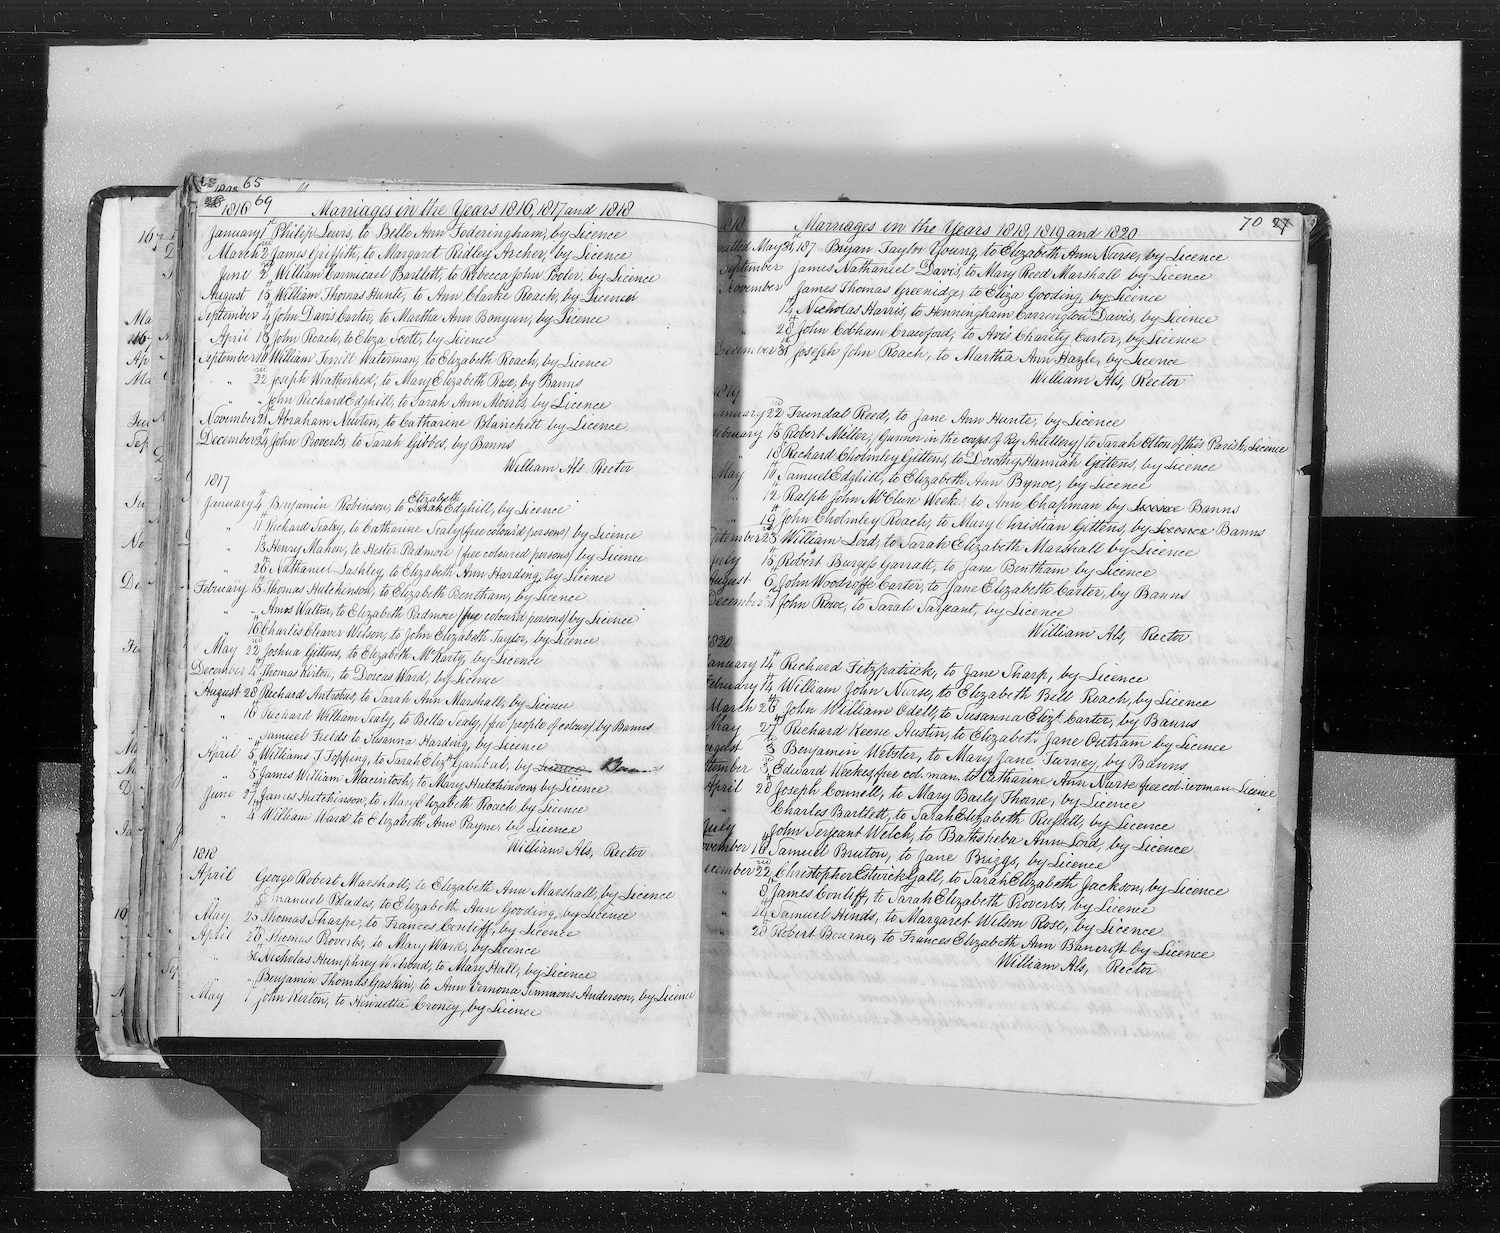 65
69
1816 Marriages in the Years 1816, 1817 and 1818
January 1st Philip Lewis, to Bello Ann Foderingham, by Licence
March 2nd James Griffith, to Margaret Ridley Archer, by Licence
June 2nd William Carmicael Bartlett, to Rebecca John Pooler, by Licence
August 15th William Thomas Hunte, to Ann Clarke Roach, by Licence
September 4th John Davis Carter, to Martha Ann Bonyun, by Licence
April 18th John Roach, to Eliza Scott, by Licence
September 10th William Terrill Waterman, to Elizabeth Roach, by Licence
" 22nd Joseph Weatherhed, to Mary Elizabeth Rose, by Banns
" " John Richard Edghill, to Sarah Ann Morris, by Licence
November 21st Abraham Newton, to Catharine Blanchett, by Licence
December 24th John Proverbs, to Sarah Gibbes, by Banns
William Als, Rector
1817
January 4th Benjamin Robinson, to Elizabeth Sarah Edghill, by Licence
" 11th Richard Sealy, to Catharine Sealy (free colour'd persons) by Licence
" 13th Henry Mahon, to Hester Padmore (free coloured persons) by Licence
" 26th Nathaniel Lashley, to Elizabeth Ann Harding, by Licence
February 13th Thomas Hutchinson, to Elizabeth Bentham, by Licence
" " Amos Walton, to Elizabeth Padmore (free colour'd persons) by Licence
" 16th Charles Cleaver Wilson, to John Elizabeth Taylor, by Licence
May 22nd Joshua Gittens, to Elizabeth McKarty, by Licence
December 4th Thomas Kirton, to Dorcas Ward, by Licence
August 28th Richard Antrobus, to Sarah Ann Marshall, by Licence
" 16th Richard William Sealy, to Bella Sealy, (free people of colour) by Banns
" " Samuel Fields to Susanna Harding, by Licence
April 5th Williams J Topping, to Sarah Elizth Gambal, by Licence Banns
" 8th James William Macintosh, to Mary Hutchinson, by Licence
June 27th James Hutchinson, to Mary Elizabeth Roach by Licence
" 4th William Ward to Elizabeth Ann Payne, by Licence
William Als, Rector
1818
April George Robert Marshall, to Elizabeth Ann Marshall, by Licence
" 8th Emanuel Blades, to Elizabeth Ann Gooding, by Licence
May 23rd Thomas Sharpe, to Frances Conliff, by Licence
April 26th Thomas Proverbs, to Mary Ward, by Licence
" Nicholas Humphrey Welrond, to Mary Hall, by Licence
" Benjamin Thomas Gaskin, to Ann Vernona Timmons Anderson, by Licence
May 7 John Kirton, to Henrietta Croney, by Licence
70
Marriages in the Years 1818, 1819 and 1820
May 24, 187 Bryan Taylor Young, to Elizabeth Ann Nurse, by Licence
September James Nathaniel Davis, to Mary Reed Marshall by Licence
November James Thomas Greenidge, to Eliza Gooding, by Licence
14th Nicholas Harris, to Henningham Carrenglow Davis, by Licence
28th John Cobham Crawford, to Avis Charity Carter, by Licence
December 31st Joseph John Roach, to Martha Ann Hazle, by Licence
William Als, Rector
1819
January 22nd Trundal Reed, to Jane Ann Hunte, by Licence
February 15th Robert Miller, (Gunner in the corps of Ry Artillery) to Sarah Elton of this Parish, Licence
" 18th Richard Cholmley Gittens, to Dorothy Hannah Gittens, by Licence
May 16th Samuel Edghill, to Elizabeth Ann Bynoe, by Licence
" 12 Ralph John McClure Week: to Ann Chapman by Licence Banns
" 19th John Cholmley Roach, to Mary Christian Gittens by Licence Banns
September 23rd William Lord, to Sarah Elizabeth Marshall by Licence
July 15th Robert Burgess Garratt, to Jane Bentham by Licence
August 6th John Woodroffe Carter, to Jane Elizabeth Carter, by Banns
December 21st John Rowe, to Sarah Sargeant, by Licence
William Als, Rector
1820
January 14th Richard Fitzpatrick, to Jane Tharp, by Licence
February 14th William John Nurse, to Elizabeth Bell Roach, by Licence
March 26th John William Odell, to Susanna Elizt Carter, by Banns
May 27th Richard Keene Austin, to Elizabeth Jane Outram by Licence
August 3rd Benjamin Webster, to Mary Jane Turney, by Banns
September 3rd Edward Weekes free col. man. to Catharine Ann Nurse free col: woman Licence
April 20th Joseph Connell, to Mary Baily Thorne, by Licence
" Charles Bartlett, to Sarah Elizabeth Russell, by Licence
July John Serjeant Welch, to Bathsheba Ann Lord, by Licence
November 16th Samuel Bruton, to Jane Briggs, by Licence
December 22nd Christopher Estwick Gall, to Sarah Elizabeth Jackson, by Licence
" 8th James Conliff, to Sarah Elizabeth Proverbs, by Licence
" 24th Samuel Hinds, to Margaret Wilson Rose, by Licence
" 28th Robert Bourne, to Frances Elizabeth Ann Bancroft by Licence
William Als, Rector